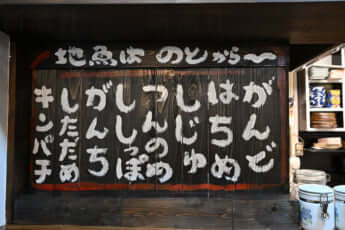 地魚は のとから〜
がんど
はちめ
しじゅ
つんのめ
ししっぽ
がんち
しただめ
キンパチ